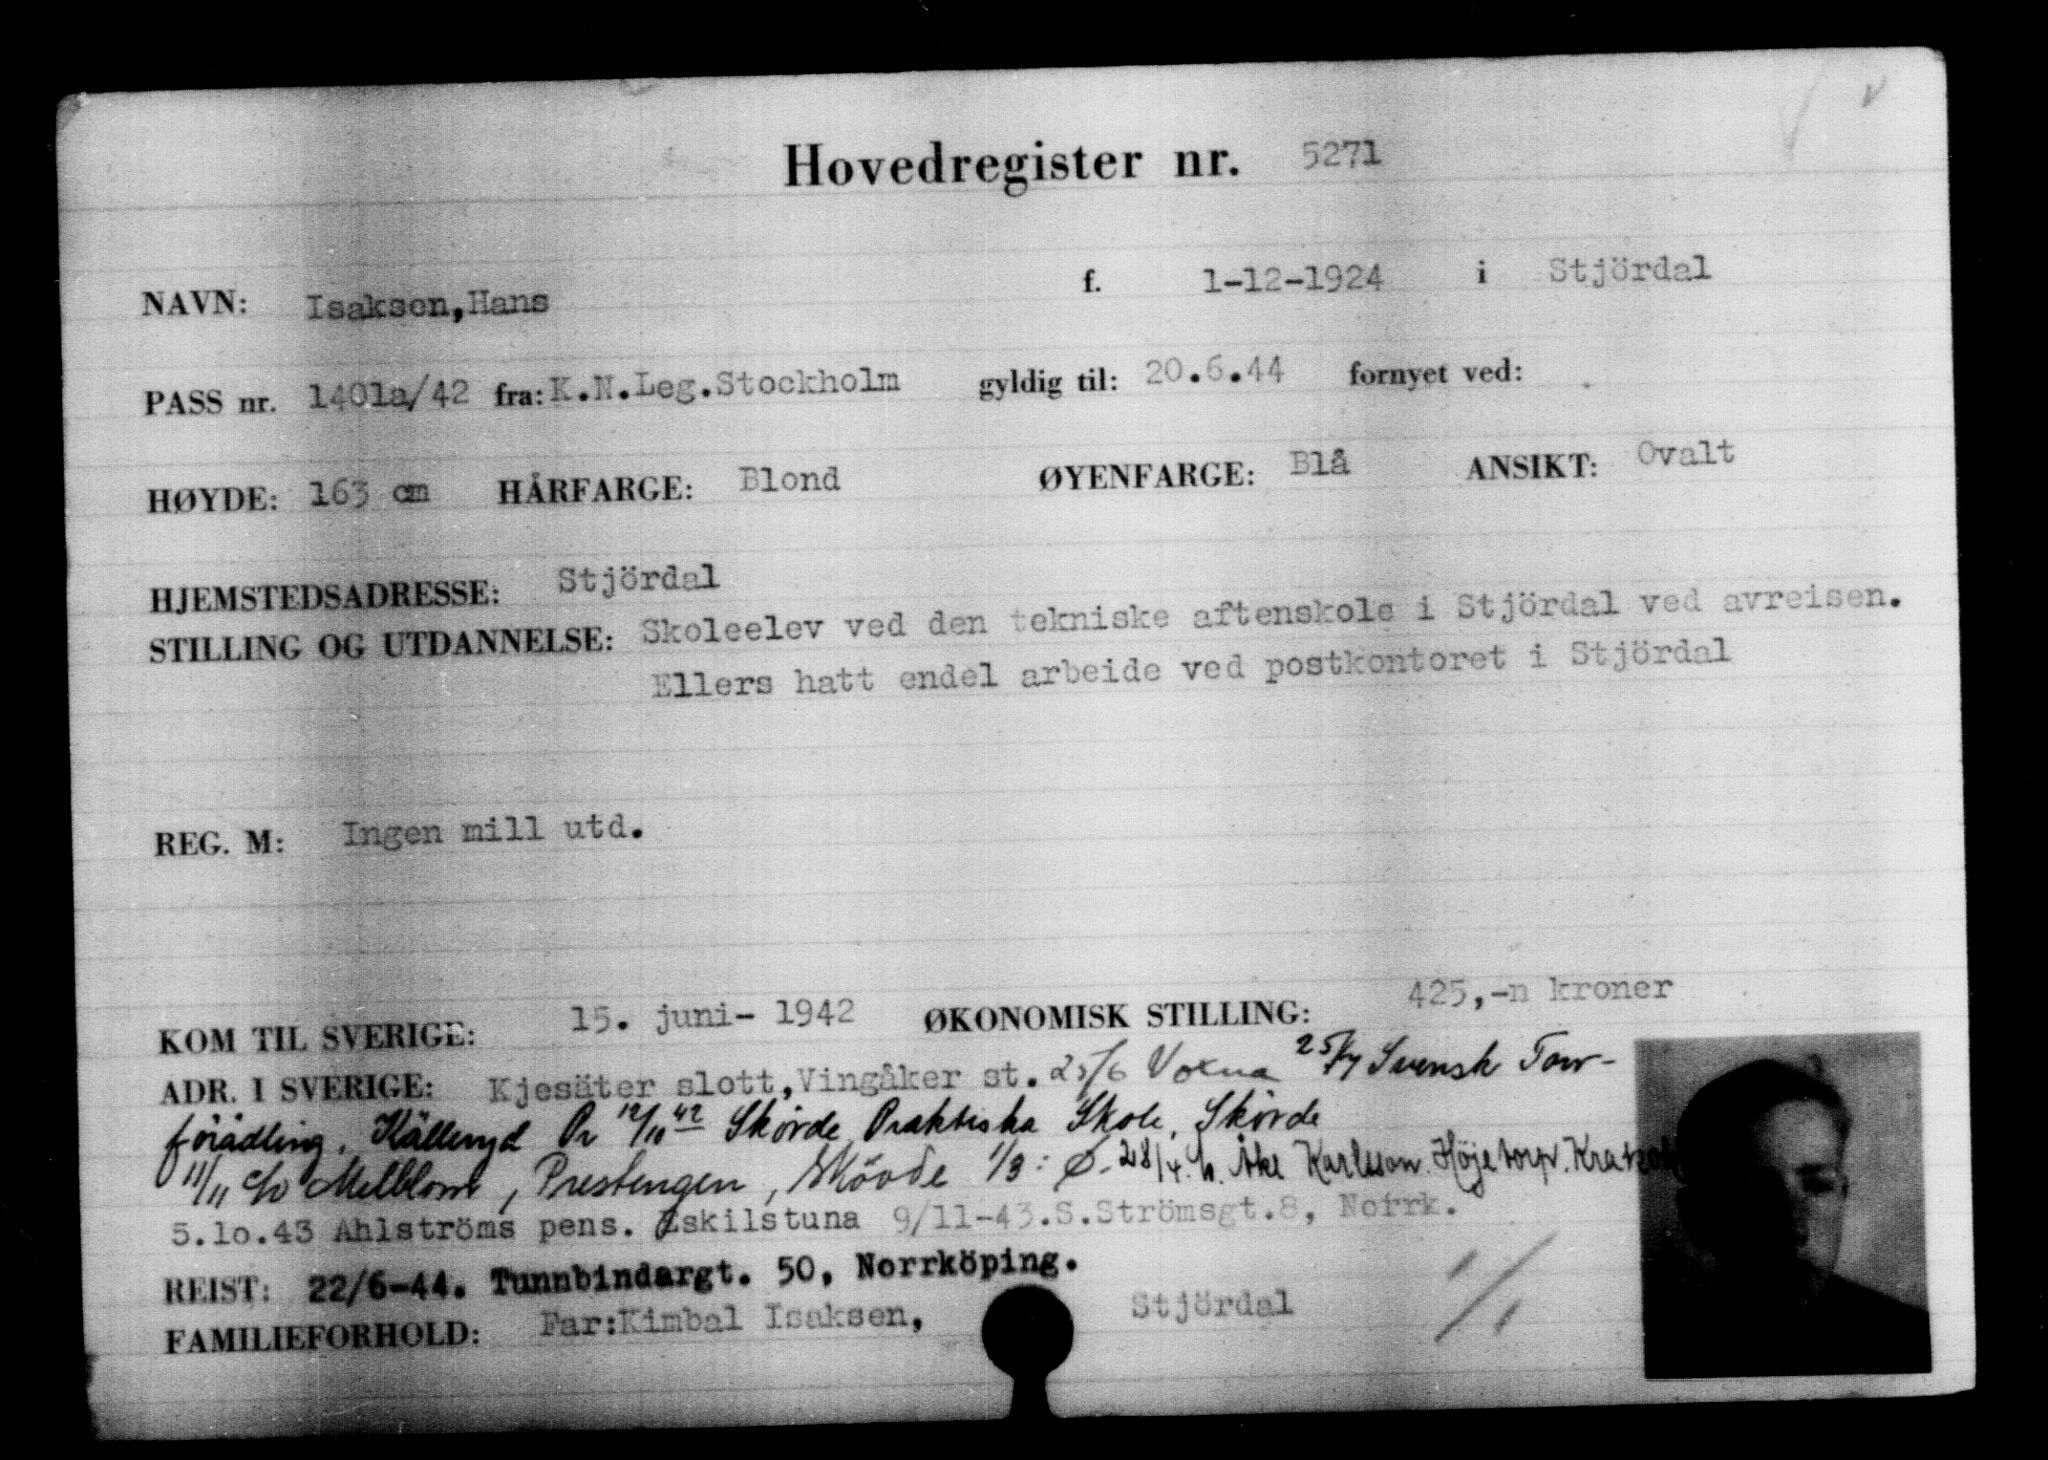 Hovedregister nr. 5271
NAVN: Isaksen,Hans f. 1-12-1924 i Stjördal
PASS nr. 1401a/42 fra: K.N.Leg.Stockholm gyldig til: 20.6.44 fornyet ved:
HØYDE: 163 cm HÅRFARGE: Blond ØYENFARGE: Blå ANSIKT: Ovalt
HJEMSTEDSADRESSE: Stjördal
STILLING OG UTDANNELSE: Skoleelev ved den tekniske aftenskole i Stjördal ved avreisen.
Ellers hatt endel arbeide ved postkontoret i Stjördal
REG. M: Ingen mill utd.
KOM TIL SVERIGE: 15. juni- 1942 ØKONOMISK STILLING: 425,-n kroner
ADR. I SVERIGE: Kjesäter slott,Vingåker st. 25/6 Voxna 25/7 Svensk Torv-
förädling, Källeryd Pr 12/10 42 Skövde Praktiska Skole, Skövde
11/11 c/o Mellblom, Prestengen, Skövde 1/3: Ø- 28/4. Åke Karlsson. Höjetorp.
5.10.43 Ahlströms pens. Eskilstuna 9/11-43.S.Strömsgt.8, Norrk.
REIST: 22/6-44. Tunnbindargt. 50, Norrköping.
FAMILIEFORHOLD: Far:Kimbal Isaksen, Stjördal